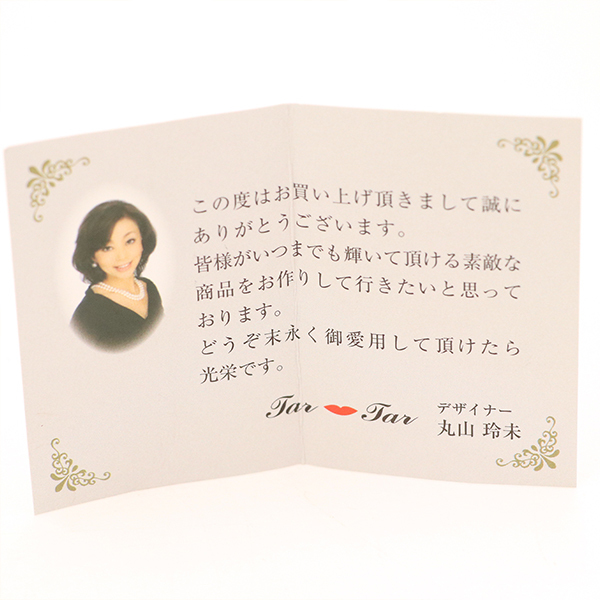 この度はお買い上げ頂きまして誠に
ありがとうございます。
皆様がいつまでも輝いて頂ける素敵な
商品をお作りして行きたいと思って
おります。
どうぞ末永く御愛用して頂けたら
光栄です。
Tar Tar
デザイナー
丸山 玲未